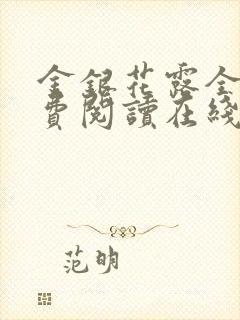 金銀花露全
費閱讀在綫
范明